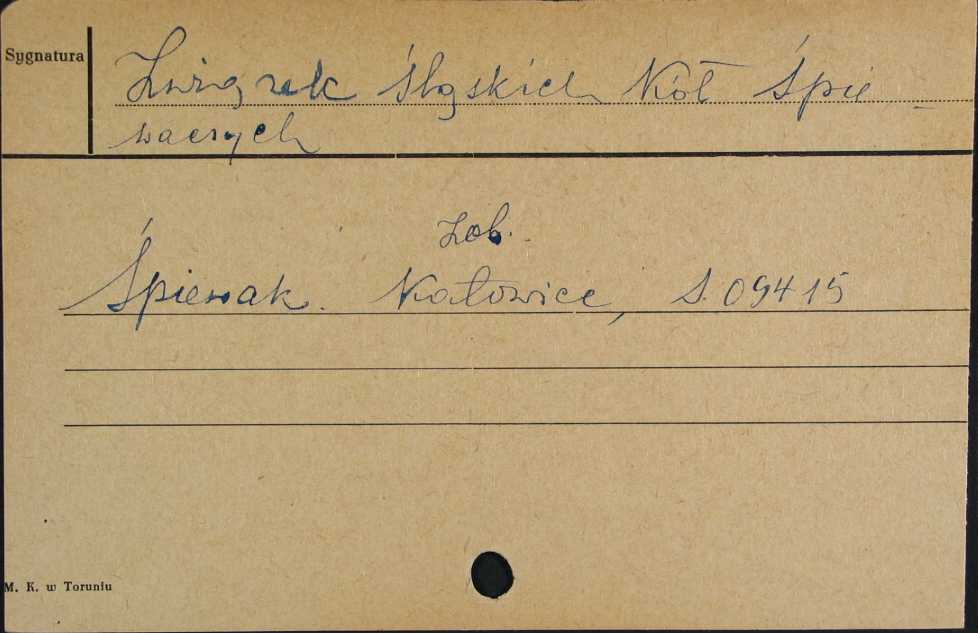 Sygnatura
Związek Śląskich Kół Śpie-
waczych
zob.
Śpiewak. Katowice, S. 09415
M. K. w Toruniu